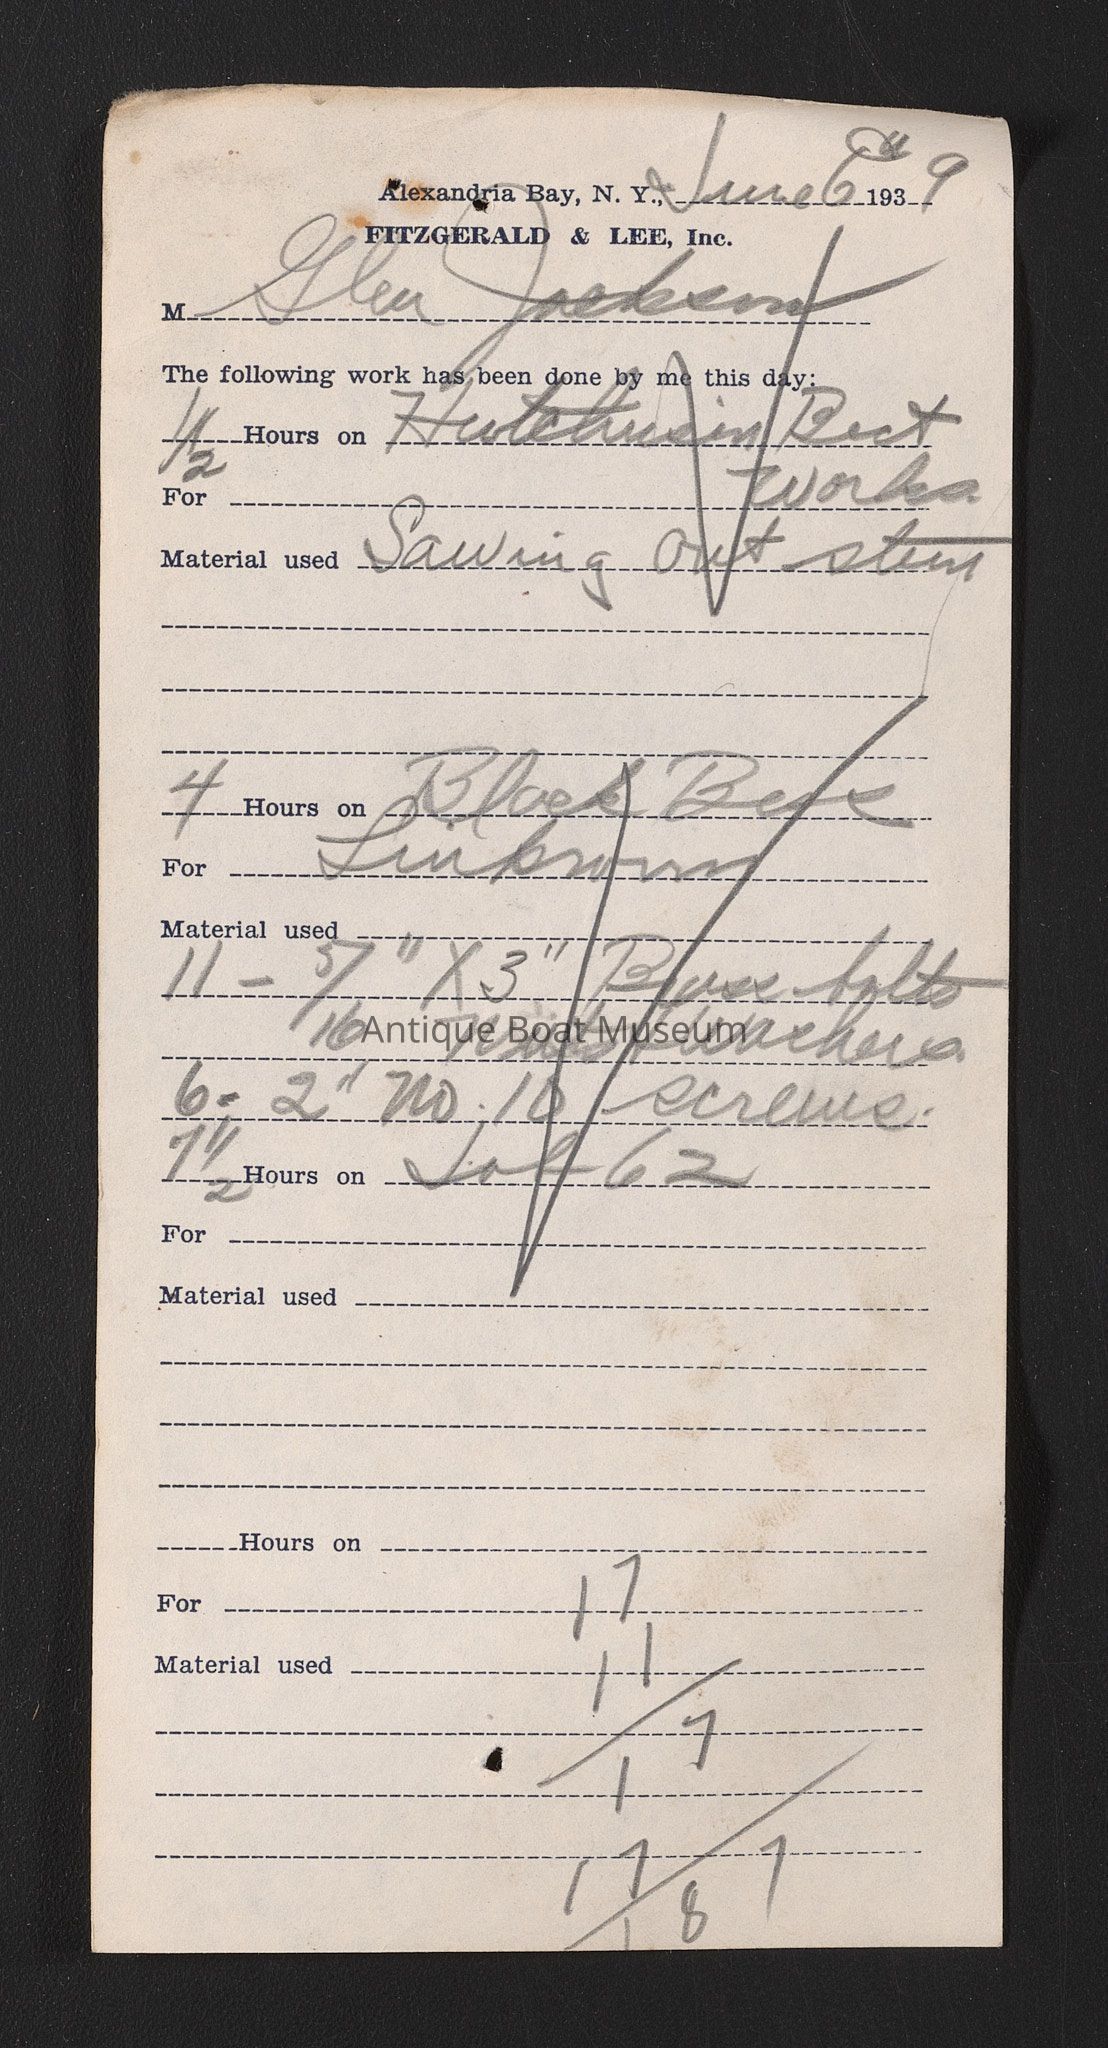 Alexandria Bay, N. Y., June 6th 1939
FITZGERALD & LEE, Inc.
M Glen Jackson
The following work has been done by me this day:
1/2 Hours on Hutchinson Boat
For Works
Material used Sawing out stem
4 Hours on Black Bess
For
Material used
11 - 5/16" X 3" Brass bolts
Nuts Washers
Antique Boat Museum
6 - 2" No. 10 screws.
7 1/2 Hours on Job 62
For
Material used
Hours on
For 17
Material used 11
7
1
17 7
1 8